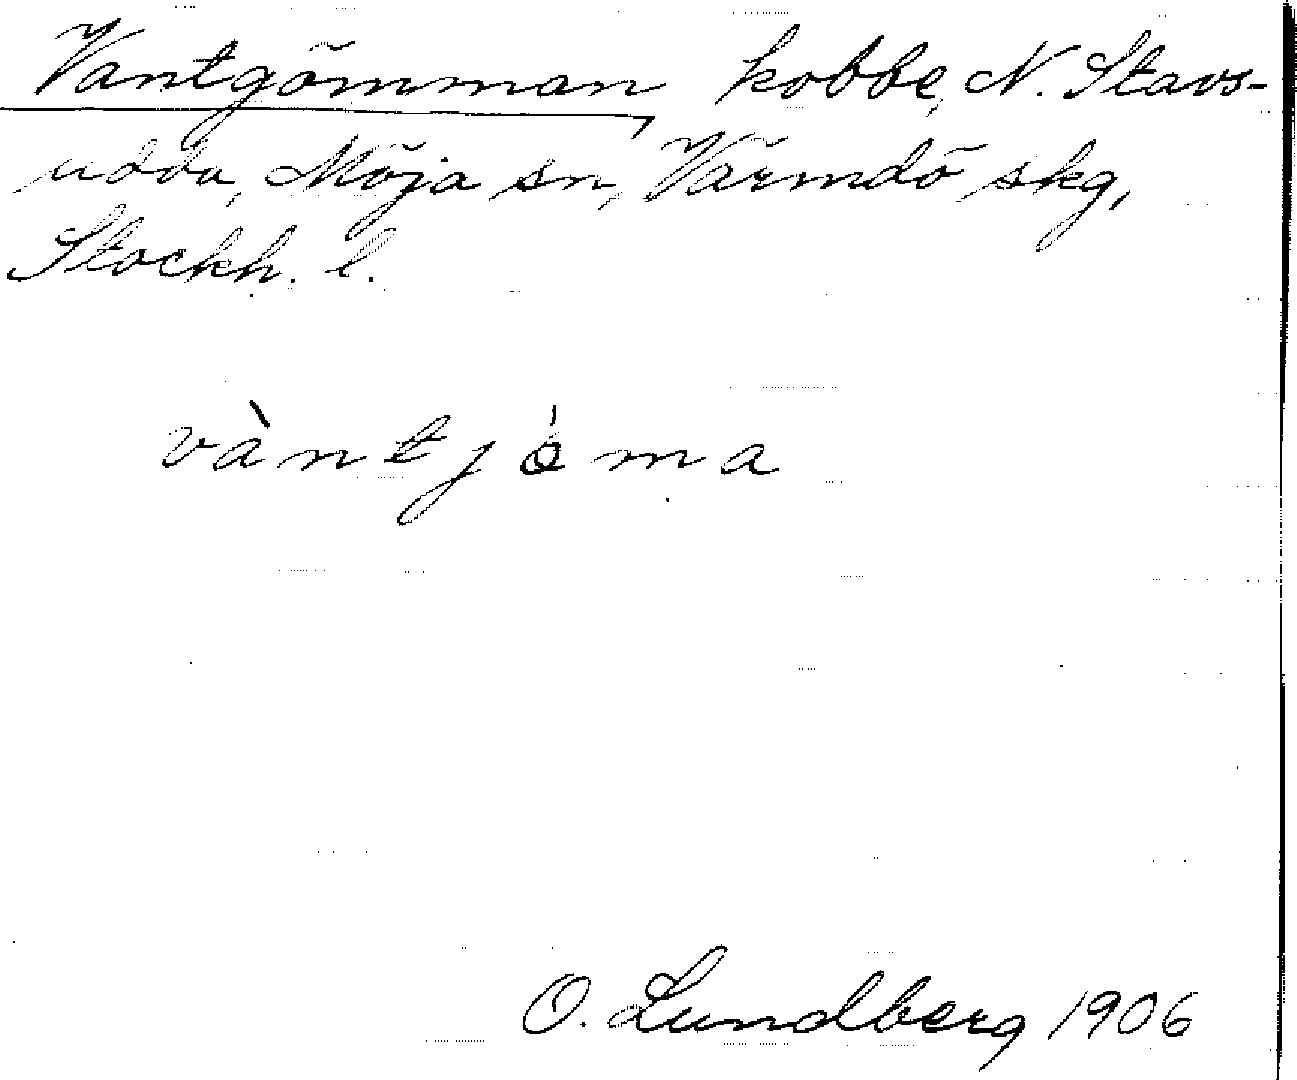 Vantgömman, kobbe, N. Stavs-
udda, Möja sn, Värmdö skg,
Stockh. l.
vàntjò̀ma
O. Lundberg 1906